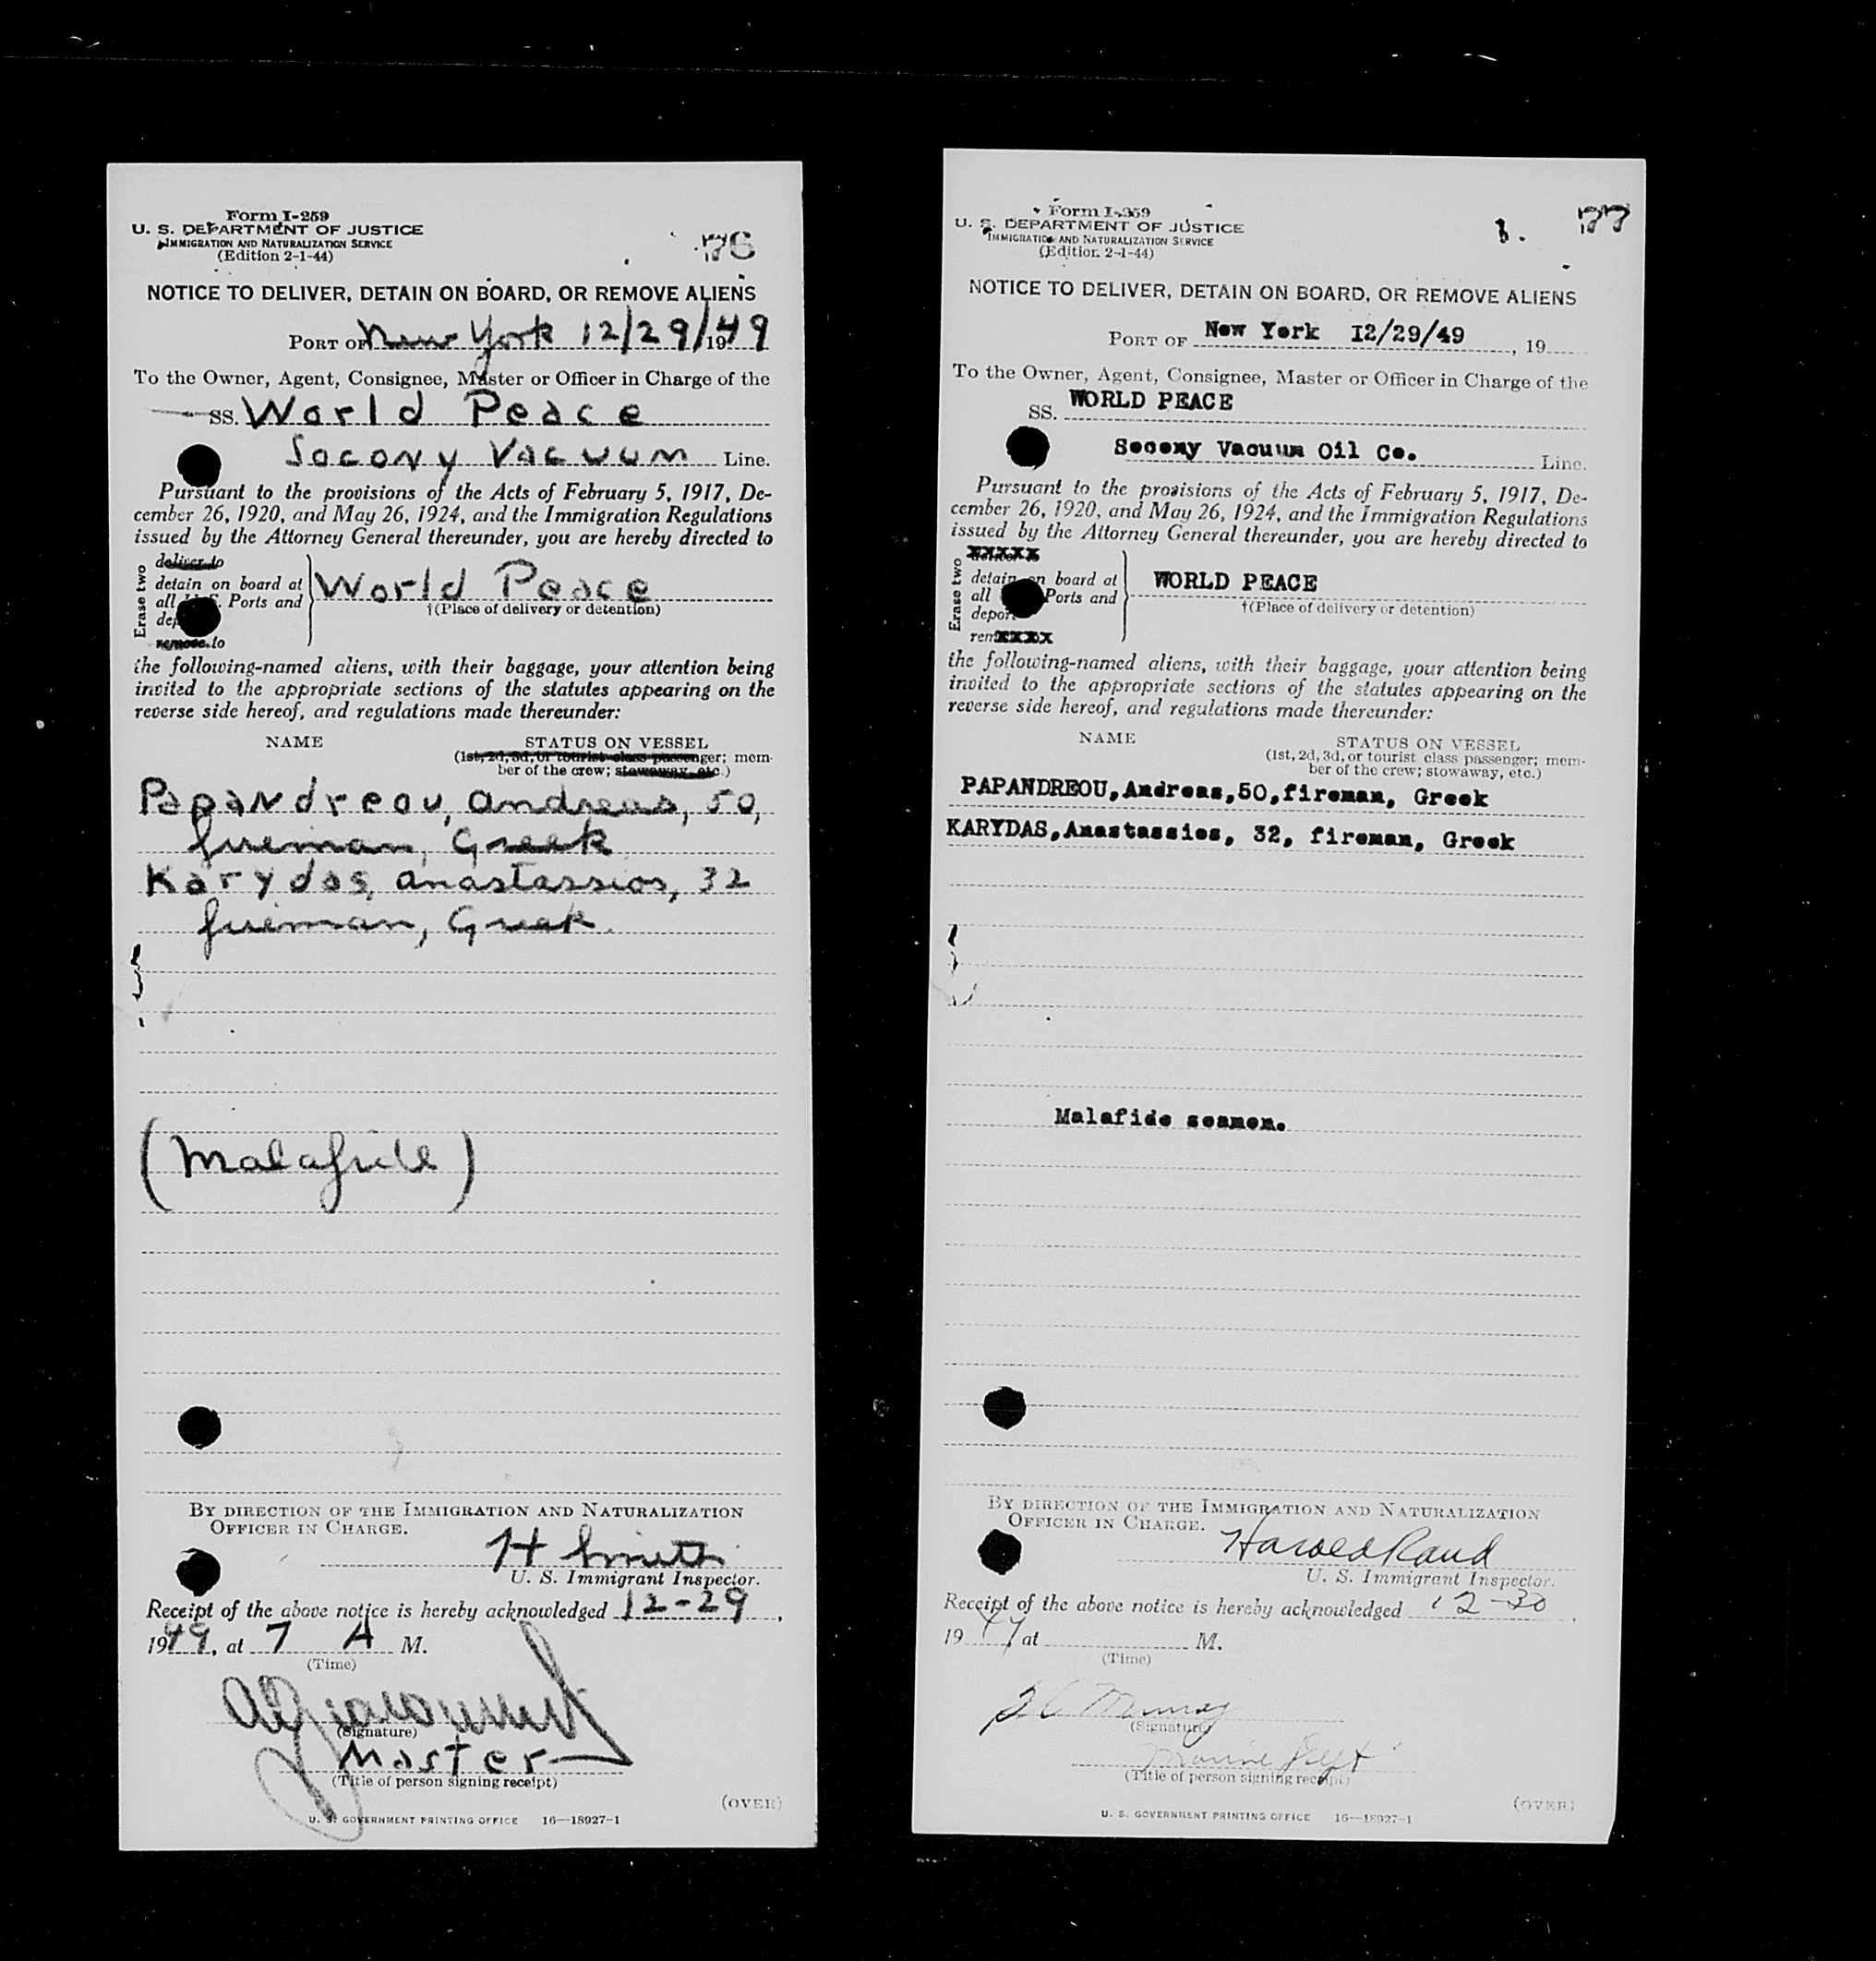 Form I-259
U. S. DEPARTMENT OF JUSTICE
IMMIGRATION AND NATURALIZATION SERVICE
(Edition 2-1-44)
76
NOTICE TO DELIVER, DETAIN ON BOARD, OR REMOVE ALIENS
PORT OF New York 12/29/1949
To the Owner, Agent, Consignee, Master or Officer in Charge of the
SS. World Peace
Socony Vacuum Line.
Pursuant to the provisions of the Acts of February 5, 1917, De-
cember 26, 1920, and May 26, 1924, and the Immigration Regulations
issued by the Attorney General thereunder, you are hereby directed to
Erase two
deliver to
detain on board at
all U.S. Ports and
remove to
World Peace
†(Place of delivery or detention)
the following-named aliens, with their baggage, your attention being
invited to the appropriate sections of the statutes appearing on the
reverse side hereof, and regulations made thereunder:
NAME STATUS ON VESSEL
(1st, 2d, 3d, or tourist class passenger; mem-
ber of the crew; stowaway, etc.)
Papandreou, Andreas, 50,
fireman, Greek
Karydas, Anastassios, 32
fireman, Greek.
(Malafide)
BY DIRECTION OF THE IMMIGRATION AND NATURALIZATION
OFFICER IN CHARGE.
H Smith
U. S. Immigrant Inspector.
Receipt of the above notice is hereby acknowledged 12-29,
1949, at 7 A M.
(Time)
(Signature)
Master
(Title of person signing receipt)
(OVER)
U. S. GOVERNMENT PRINTING OFFICE 16—18927-1
Form I-259
U. S. DEPARTMENT OF JUSTICE
IMMIGRATION AND NATURALIZATION SERVICE
(Edition 2-1-44)
77
NOTICE TO DELIVER, DETAIN ON BOARD, OR REMOVE ALIENS
PORT OF New York 12/29/49, 19
To the Owner, Agent, Consignee, Master or Officer in Charge of the
SS. WORLD PEACE
Socony Vacuum Oil Co. Line.
Pursuant to the provisions of the Acts of February 5, 1917, De-
cember 26, 1920, and May 26, 1924, and the Immigration Regulations
issued by the Attorney General thereunder, you are hereby directed to
Erase two
xxxxx
detain on board at
all Ports and
deport
remxxxx
WORLD PEACE
†(Place of delivery or detention)
the following-named aliens, with their baggage, your attention being
invited to the appropriate sections of the statutes appearing on the
reverse side hereof, and regulations made thereunder:
NAME STATUS ON VESSEL
(1st, 2d, 3d, or tourist class passenger; mem-
ber of the crew; stowaway, etc.)
PAPANDREOU,Andreas,50,fireman, Greek
KARYDAS,Anastassios, 32, fireman, Greek
Malafide seamen.
BY DIRECTION OF THE IMMIGRATION AND NATURALIZATION
OFFICER IN CHARGE.
Harold Rand
U. S. Immigrant Inspector.
Receipt of the above notice is hereby acknowledged 12-30,
19 at M.
(Time)
Murray
(Signature)
Marine Dept
(Title of person signing receipt)
(OVER)
U. S. GOVERNMENT PRINTING OFFICE 16—18927-1